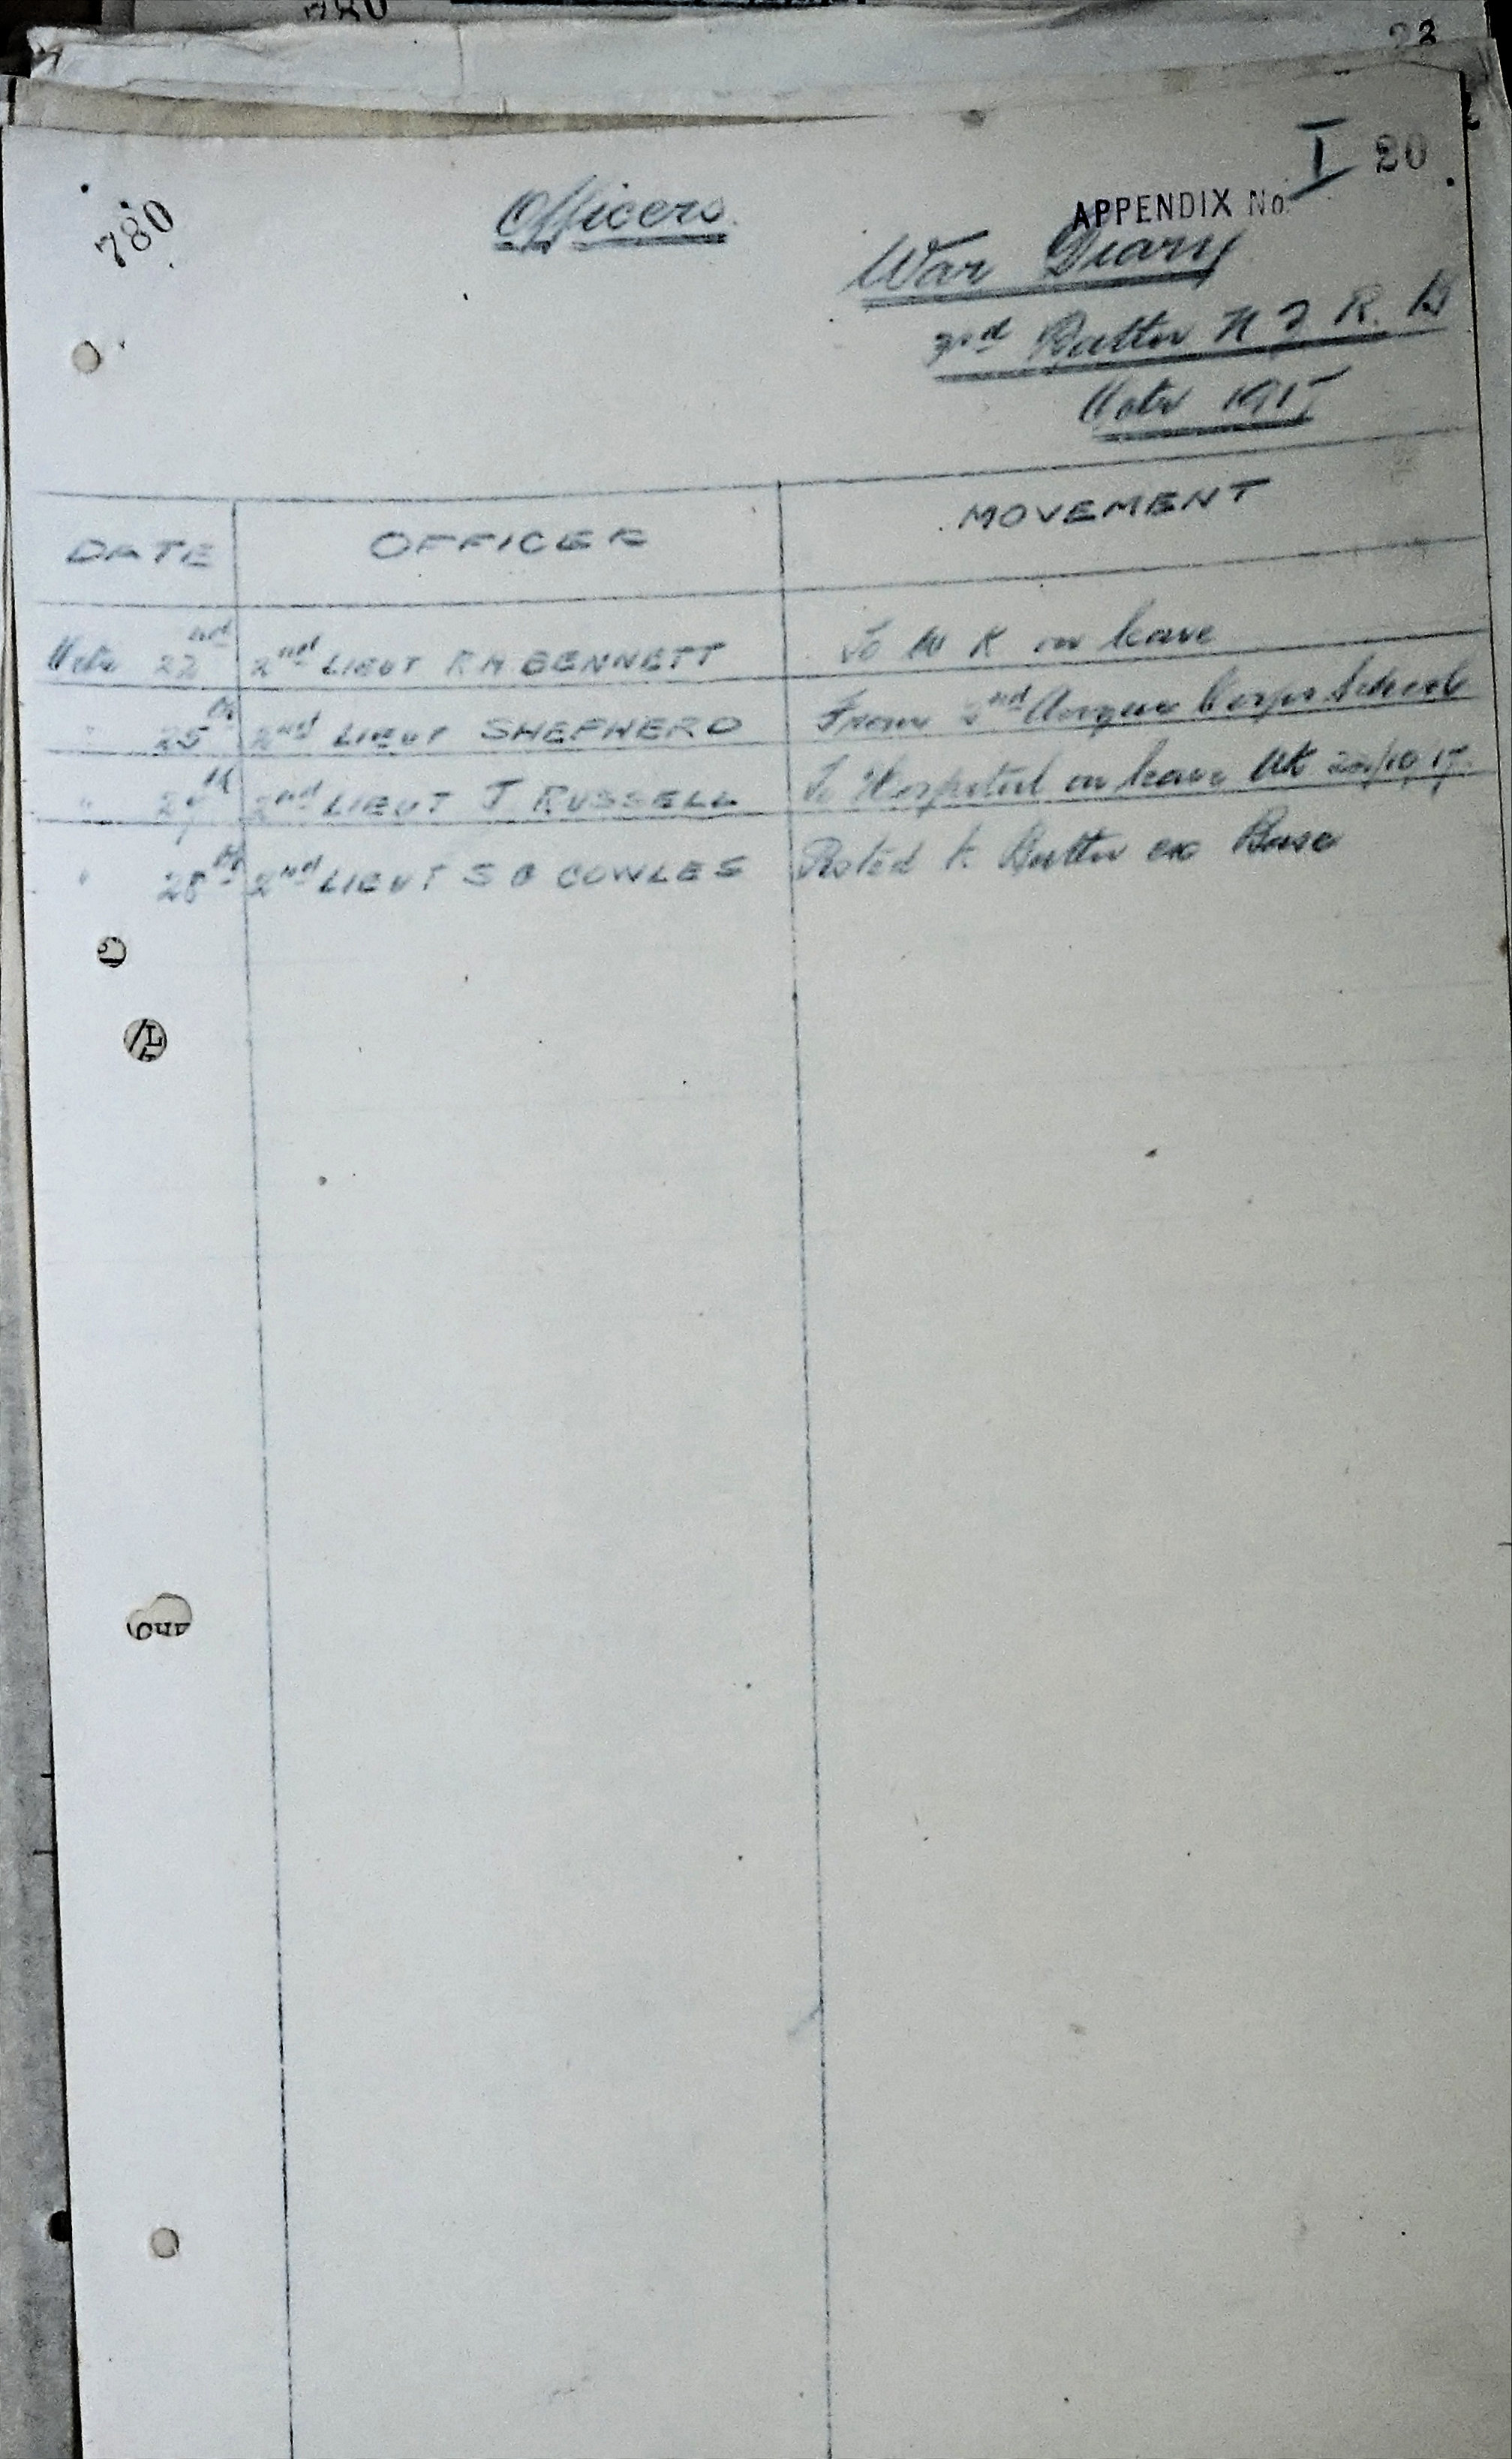 780
23
I 20
780
Officers.
APPENDIX No.
War Diary
3rd Battn N Z R. B
Octr 1917
DATE OFFICER MOVEMENT
Octr 22nd 2nd LIEUT R H BENNETT To U K on leave
" 25th 2nd LIEUT SHEPHERD From 2nd Anzac Corps School
" 27th 2nd LIEUT J RUSSELL To Hospital on leave UK 10 17
" 28th 2nd LIEUT S COWLES Posted to Battn ex Base